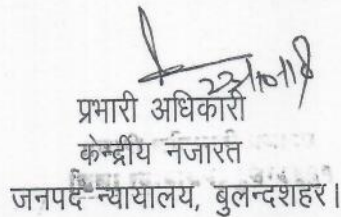 23/10/18
प्रभारी अधिकारी
केन्द्रीय नजारत
जनपद न्यायालय, बुलन्दशहर।